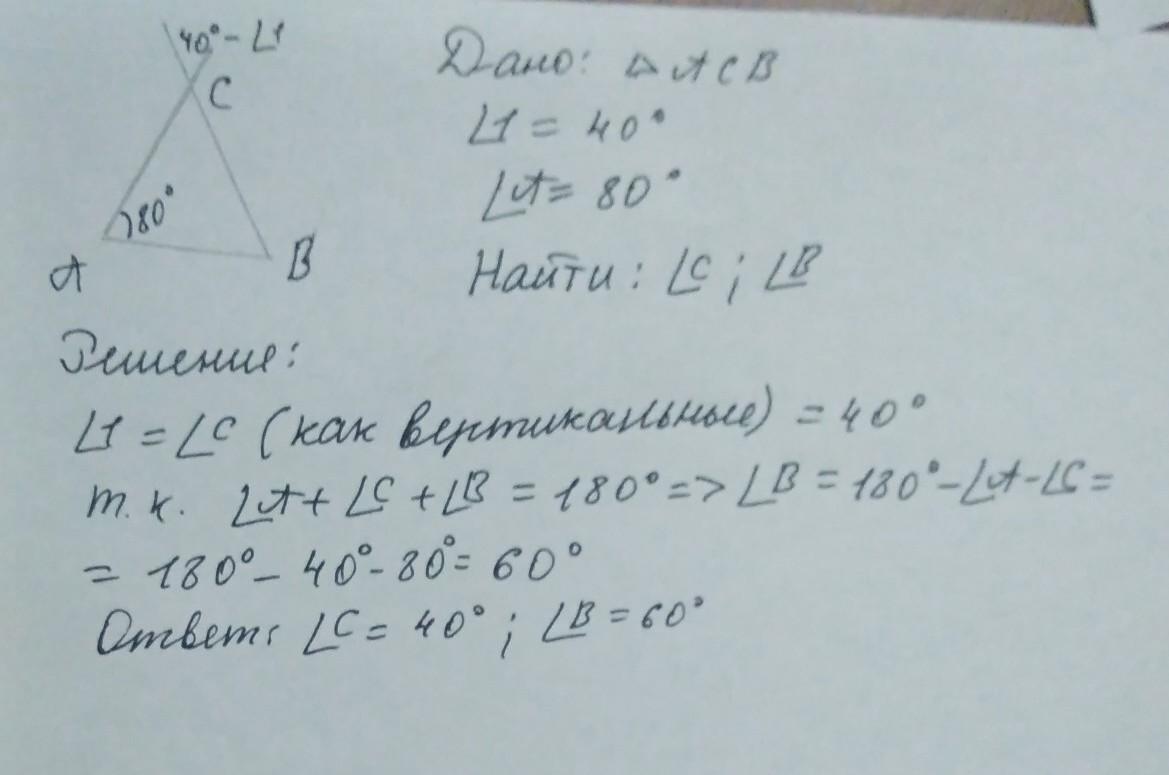 40° - ∠1
C
80°
A
B
Дано: △ACB
∠1 = 40°
∠A = 80°
Найти: ∠C; ∠B
Решение:
∠1 = ∠C (как вертикальные) = 40°
т. к. ∠A + ∠C + ∠B = 180° => ∠B = 180° - ∠A - ∠C =
= 180° - 40° - 80° = 60°
Ответ: ∠C = 40°; ∠B = 60°